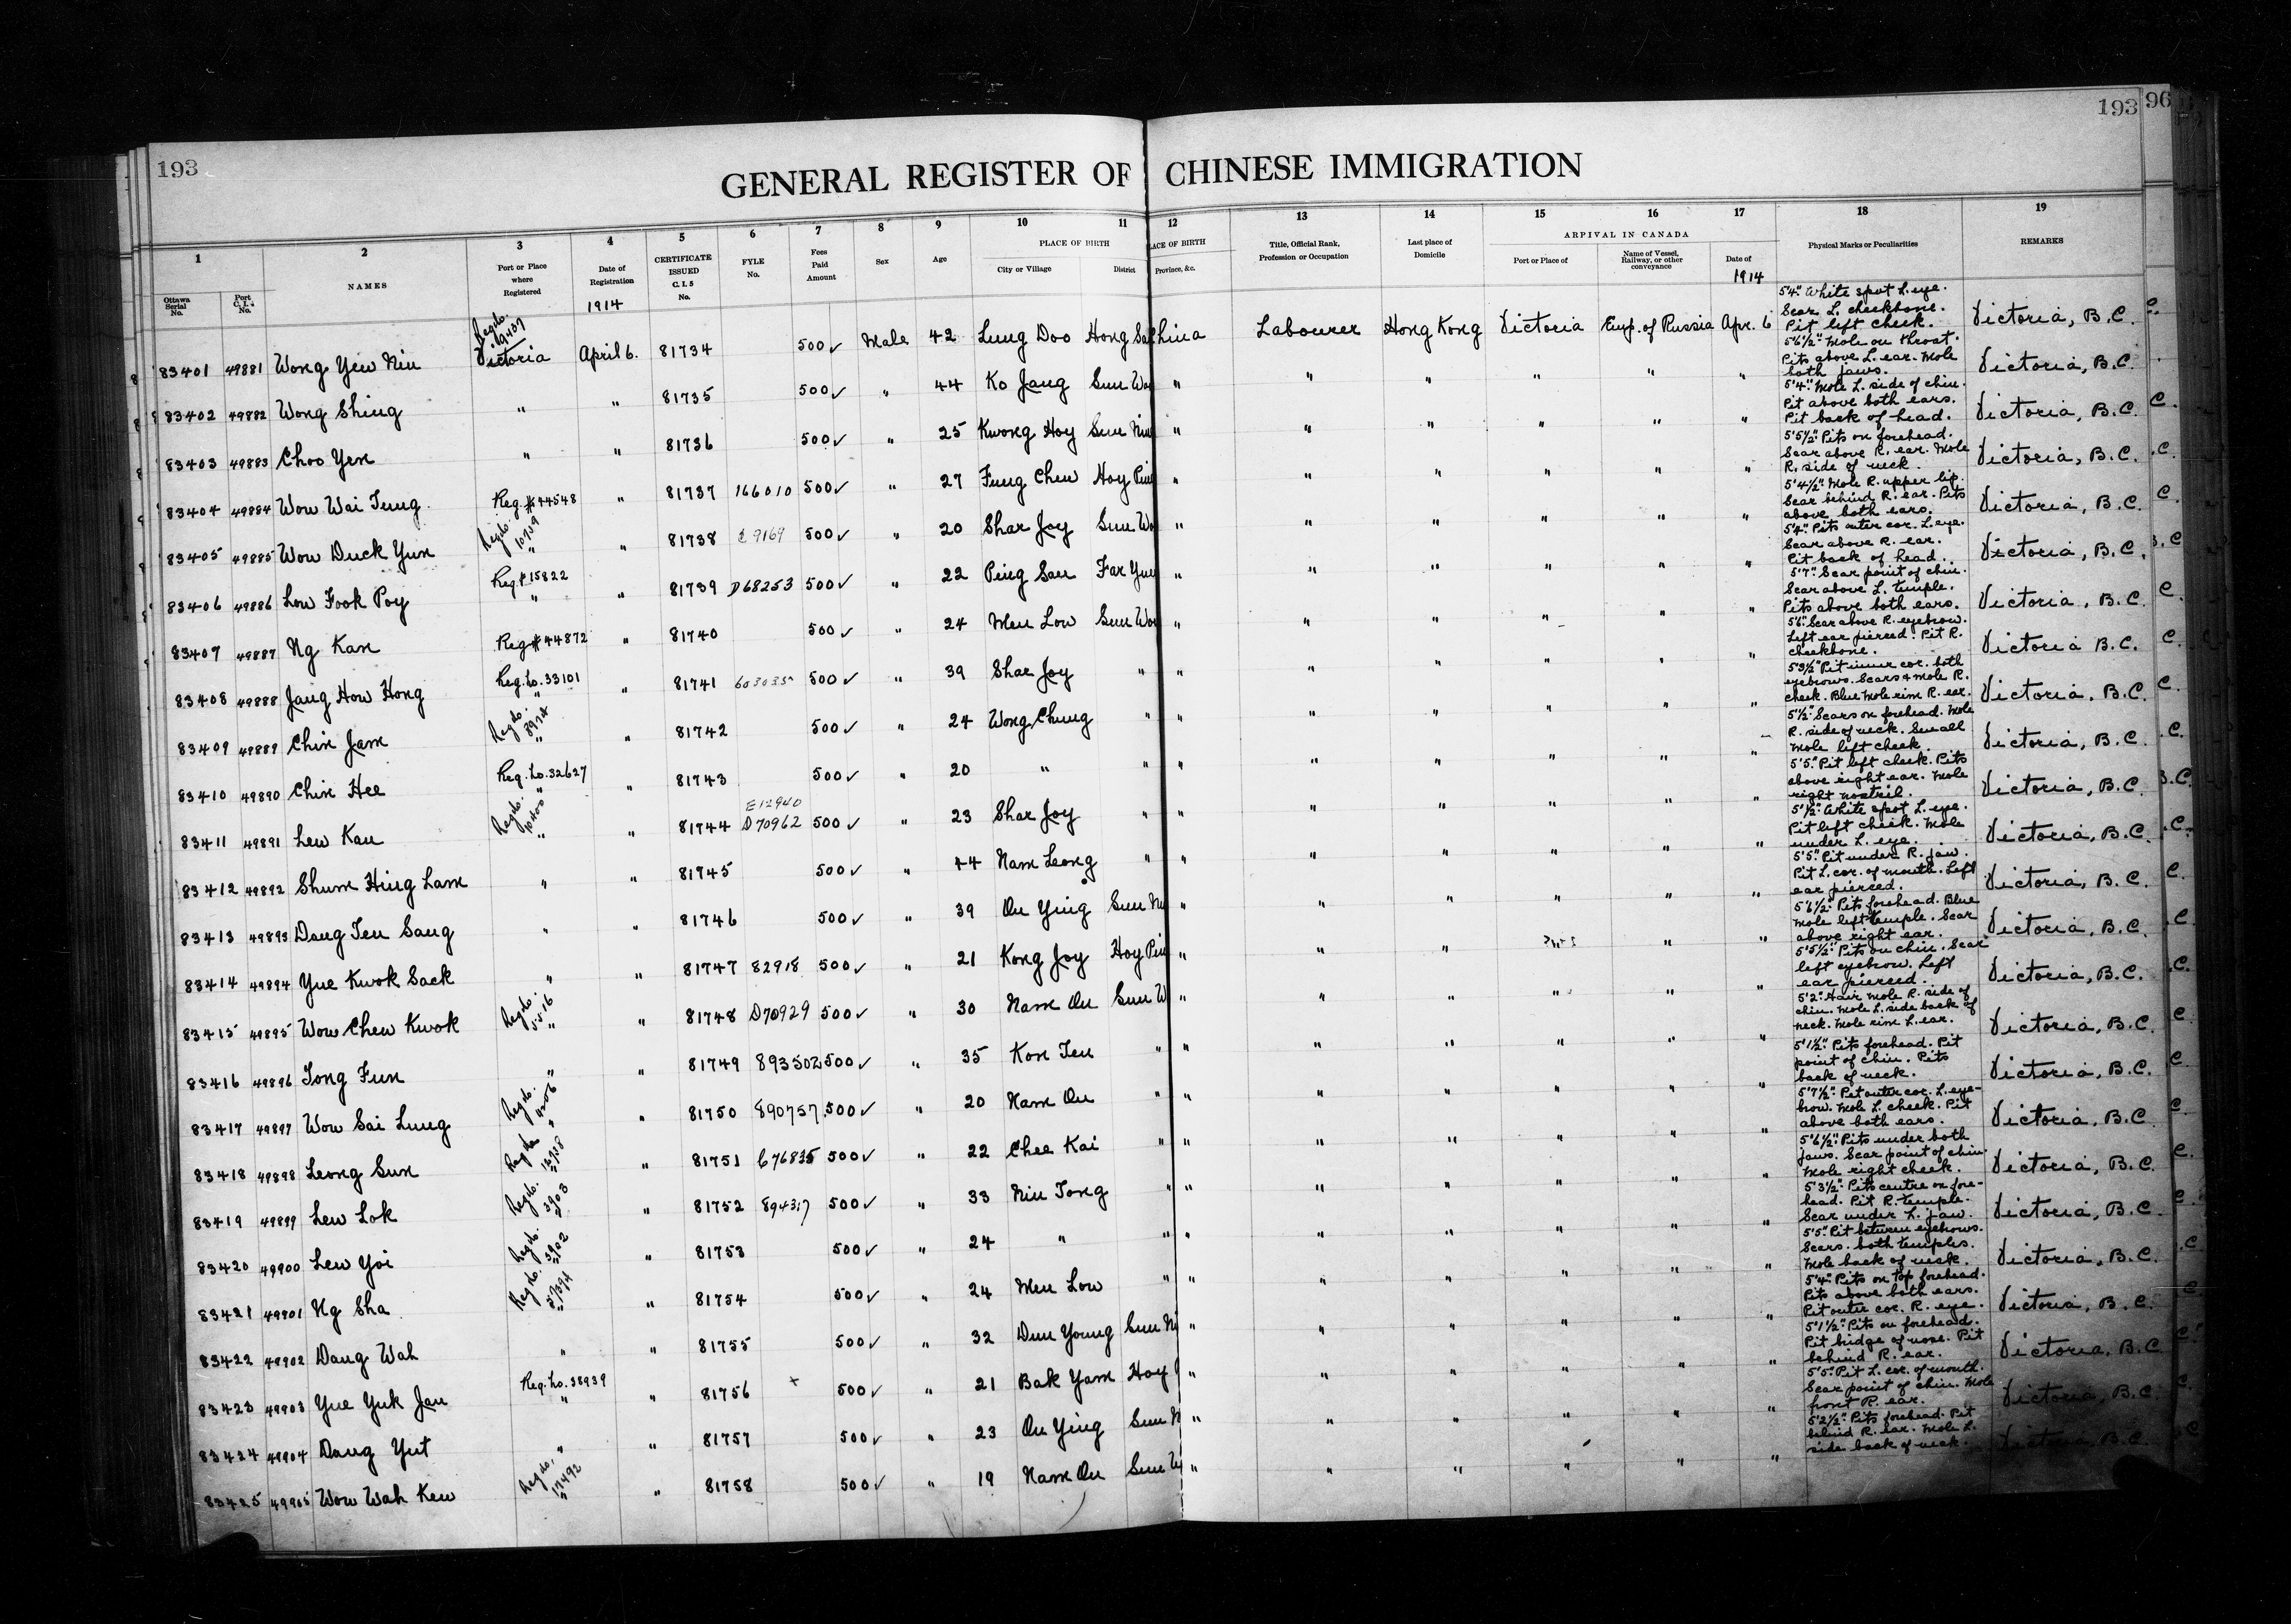 193
193
96
GENERAL REGISTER OF CHINESE IMMIGRATION
1 2 3 4 5 6 7 8 9 10 11 12 13 14 15 16 17 18 19
Ottawa Serial No.
Port C. I. No.
NAMES
Port or Place where Registered
Date of Registration
1914
CERTIFICATE ISSUED C. I. 5 No.
FYLE No.
Fees Paid Amount
Sex
Age
PLACE OF BIRTH
City or Village
District
PLACE OF BIRTH
Province, &c.
Title, Official Rank, Profession or Occupation
Last place of Domicile
ARRIVAL IN CANADA
Port or Place of
Name of Vessel, Railway, or other conveyance
Date of
1914
Physical Marks or Peculiarities
REMARKS
83401 49881 Wong Yew Niu Victoria April 6. 81734 500 ✓ Male 42 Lung Doo Hong San China Labourer Hong Kong Victoria Emp. of Russia Apr. 6 5'4". White spot L. eye. Scar L. cheekbone. Pit left cheek. Victoria, B.C.
83402 49882 Wong Shing " " 81735 500 ✓ " 44 Ko Jang Sun Wo " " " " " " 5'6½". Mole on throat. Pits above L. ear. Mole both jaws. Victoria, B.C.
83403 49883 Choo Yen " " 81736 500 ✓ " 25 Kwong Hoy Sun Nin " " " " " " 5'4". Mole L. side of chin. Pit above both ears. Pit back of head. Victoria, B.C.
83404 49884 Wow Wai Tung Reg. # 44548 " 81737 166010 500 ✓ " 27 Fung Chew Hoy Pin " " " " " " 5'5½". Pits on forehead. Scar above R. ear. Mole R. side of neck. Victoria, B.C.
83405 49885 Wow Duck Yun " " 81738 9169 500 ✓ " 20 Shar Joy Sun Wo " " " " " " 5'4½". Mole R. upper lip. Scar behind R. ear. Pits above both ears. Victoria, B.C.
83406 49886 Low Fook Poy Reg # 15822 " " 81739 D68253 500 ✓ " 22 Ping San Far Yun " " " " " " 5'4". Pits outer cor. L. eye. Scar above R. ear. Pit back of head. Victoria, B.C.
83407 49887 Ng Kan Reg # 44872 " 81740 500 ✓ " 24 Men Low Sun Wo " " " " " " 5'7". Scar point of chin. Scar above L. temple. Pits above both ears. Victoria, B.C.
83408 49888 Jang How Hong Reg. Lo. 33101 " " 81741 500 ✓ " 39 Shar Joy " " " " " " " 5'6". Scar above R. eyebrow. Left ear pierced. Pit R. cheekbone. Victoria B.C.
83409 49889 Chin Jam " " 81742 500 ✓ " 24 Wong Chung " " " " " " " 5'3½" Pit inner cor. both eyebrows. Scars & mole R. cheek. Blue mole rim R. ear. Victoria, B.C.
83410 49890 Chin Hee Reg. Lo. 32627 " " 81743 500 ✓ " 20 " " " " " " " " 5'½". Scars on forehead. Mole R. side of neck. Small mole left cheek. Victoria, B.C.
83411 49891 Lew Kau " " 81744 E12940 D70962 500 ✓ " 23 Shar Joy " " " " " " " 5'5". Pit left cheek. Pits above right ear. Mole right nostril. Victoria, B.C.
83412 49892 Shum Hing Lam " " 81745 500 ✓ " 44 Nam Leong " " " " " " " 5'½". White spot L. eye. Pit left cheek. Mole under L. eye. Victoria, B.C.
83413 49893 Dang Ten Sang " " 81746 500 ✓ " 39 On Ying Sun Ni " " " " " " 5'5". Pit under R. jaw. Pit L. cor. of mouth. Left ear pierced. Victoria, B.C.
83414 49894 Yue Kwok Sack " " 81747 82918 500 ✓ " 21 Kong Joy Hoy Pin " " " " " 5'6½". Pits forehead. Blue mole left temple. Scar above right ear. Victoria, B.C.
83415 49895 Wow Chew Kwok " " 81748 D70929 500 ✓ " 30 Nam On Sun W " " " " " " 5'5½". Pits on chin. Scar left eyebrow. Left ear pierced. Victoria, B.C.
83416 49896 Tong Fun " " 81749 893502 500 ✓ " 35 Kon Ten " " " " " " " 5'2". Hair mole R. side of chin. Mole L. side back of neck. Mole rim L. ear. Victoria, B.C.
83417 49897 Wow Sai Lung " " 81750 890757 500 ✓ " 20 Nam On " " " " " " " 5'1½". Pits forehead. Pit point of chin. Pits back of neck. Victoria, B.C.
83418 49898 Leong Sun " " 81751 C76835 500 ✓ " 22 Chee Kai " " " " " " " 5'7½". Pit outer cor. L. eyebrow. Mole L. cheek. Pit above both ears. Victoria, B.C.
83419 49899 Lew Lok " " 81752 894317 500 ✓ " 33 Niu Tong " " " " " " " 5'6½". Pits under both jaws. Scar point of chin. Mole right cheek. Victoria, B.C.
83420 49900 Lew Yoi " " 81753 500 ✓ " 24 " " " " " " " " 5'3½". Pits centre on forehead. Pit R. temple. Scar under L. jaw. Victoria, B.C.
83421 49901 Ng Sha " " 81754 500 ✓ " 24 Men Low " " " " " " " 5'5". Pit between eyebrows. Scars both temples. Mole back of neck. Victoria, B.C.
83422 49902 Dang Wah " " 81755 500 ✓ " 32 Dun Young Sun Ni " " " " " " 5'4". Pits on top forehead. Pits above both ears. Pit outer cor. R. eye. Victoria, B.C.
83423 49903 Yue Yuk Jan Reg. Lo. 38939 " " 81756 × 500 ✓ " 21 Bak Yam Hoy " " " " " " 5'1½". Pits on forehead. Pit bridge of nose. Pit behind R. ear. Victoria, B.C.
83424 49904 Dang Yut " " 81757 500 ✓ " 23 On Ying Sun N " " " " " " 5'5". Pit L. cor. of mouth. Scar point of chin. Mole front R. ear. Victoria, B.C.
83425 49905 Wow Wah Kew Reg. No. 17492 " " 81758 500 ✓ " 19 Nam On Sun W " " " " " " 5'2½". Pits forehead. Pit behind R. ear. Mole L. side back of neck. Victoria, B.C.